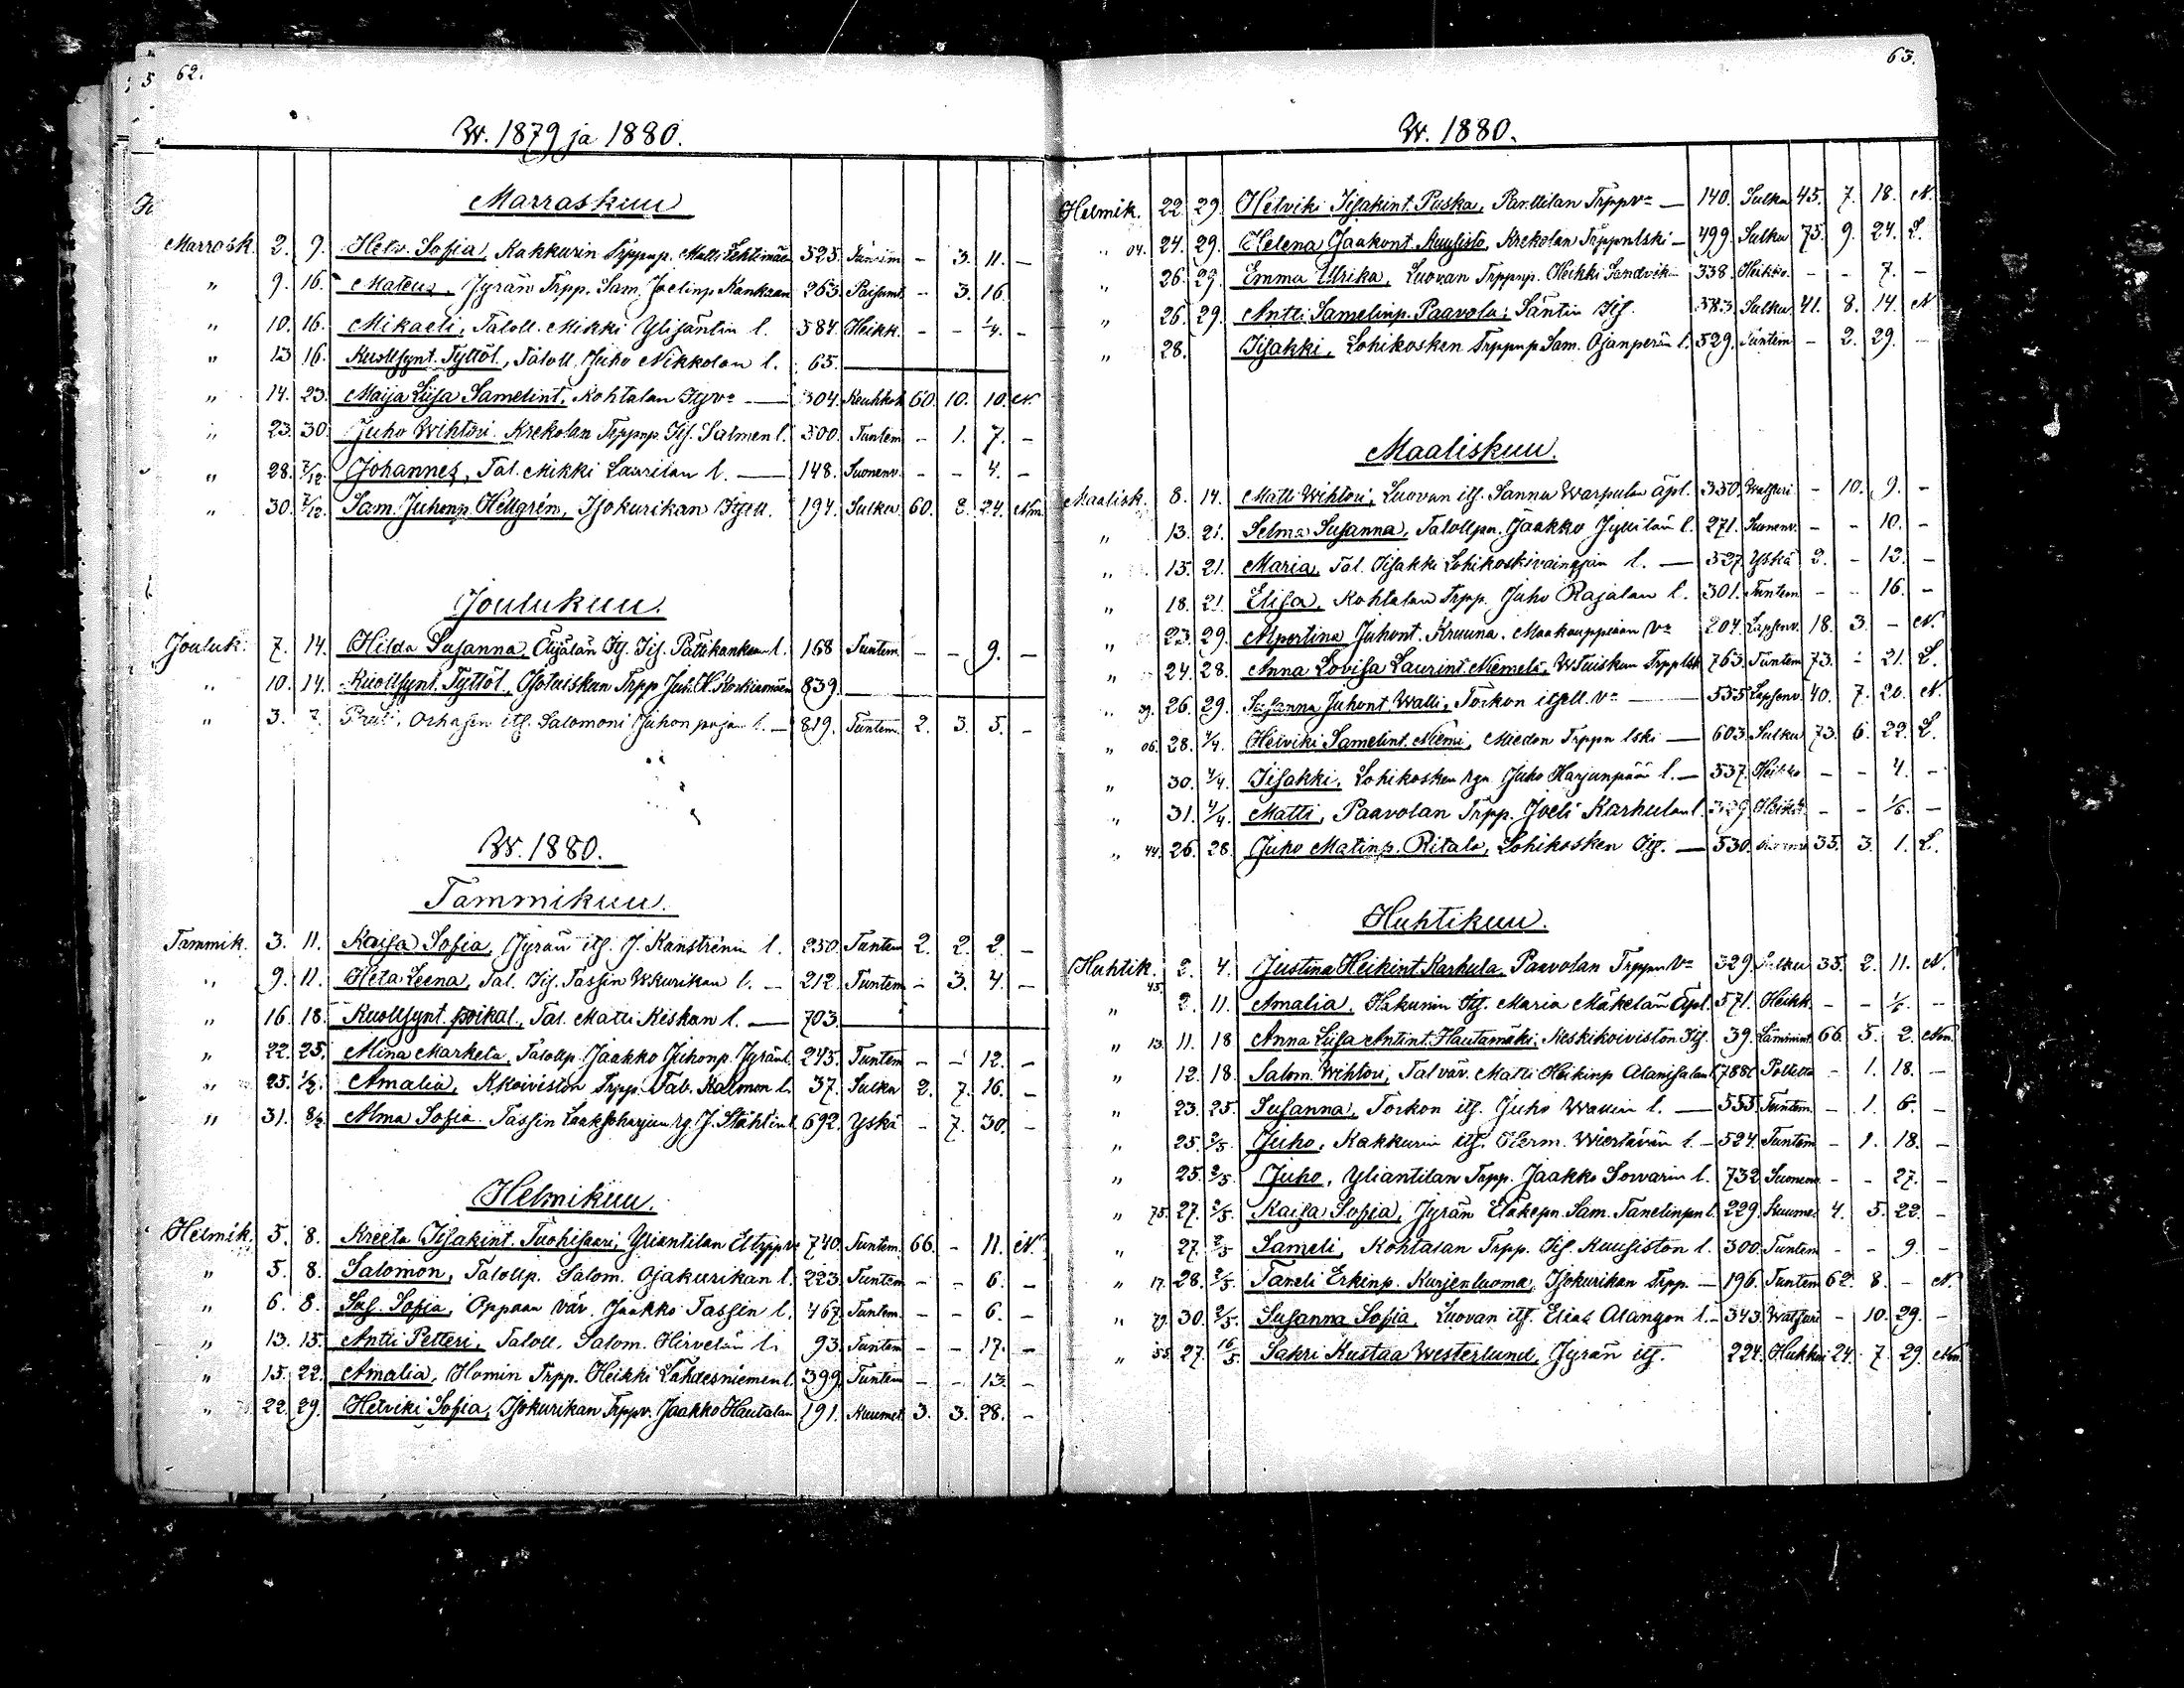 62.
W. 1879 ja 1880.
Marraskuu
Marrask. 2. 9. Helv. Sofia, Kakkurin Trppnp. Matti Lehtimäen 525. Tuntem - 3. 11. -
„ 9. 16. Mateus, Jyrän Trpp. Sam. Joelinp. Kankaan 263. Paisumt. - 3. 16.
„ 10. 16. Mikaeli, Taloll. Mikki Ylisäntin l. 584. Heikk. - - 1/4. -
„ 13 16. Kuollsynt. Tyttöl., Taloll. Juho Nikkolan l. 65.
„ 14. 23. Maija Liisa Samelint., Kohtalan Itsv:a — 304. Keuhkot 60. 10. 10. N.
„ 23. 30. Juho Wihtori. Krekolan Trppnp. Iis. Salmen l. 500. Tuntem - 1. 7. -
„ 28. 7/12. Johannes, Tal. Mikki Laurilan l. — 148. Suonenv. - - 4. -
„ 30. 7/12. Sam. Juhonp. Hellgrén, Isokurikan Itsell. 194. Sulku. 60. 8. 24. Nm.
Joulukuu.
Jouluk. 7. 14. Hilda Susanna, Äijälän Its. Iis. Pätikankaan l. 168 Tuntem. - - 9. -
„ 10. 14. Kuollsynt. Tyttöl., Isotuiskun Trpp. Juh. H. Koskimäen 839.
„ 3. 7. Orhasen its. Salomoni Juhon pojan l. — 819. Tuntem. 2. 3. 5. -
W. 1880.
Tammikuu.
Tammik. 3. 11. Kaisa Sofia, Jyrän its. J. Kanströmin l. 250. Tuntem 2. 2. 2. -
„ 9. 11. Heta Leena, Tal. Iis. Tassin Wkurikan l. — 212. Tuntem - 3. 4. -
„ 16. 18. Kuollsynt. poikal., Tal. Matti Kiskan l. — 703.
„ 22. 25. Mina Marketa, Talollp. Jaakko Juhonp. Jyrän l. 245. Tuntem - - 12. -
„ 25. 1/2. Amalia, Kkoiviston Trpp. Tab. Kalmon l. 37. Sulku 2. 7. 16. -
„ 31. 8/2. Alma Sofia. Tassin Laaksoharjun rg. J. Ståhlin l. 692. Yskä - 7. 30. -
Helmikuu.
Helmik. 5. 8. Kreeta Iisakint. Tuohisaari, Yliantilan Etrppv. 740. Tuntem. 66. - 11. N.
„ 5. 8. Salomon, Talollp. Salom. Ojakurikan l. 223. Tuntem - - 6. -
„ 6. 8. Sus. Sofia, Oppaan väv. Jaakko Tassin l. 467. Tuntem. - - 6. -
„ 13. 15. Antti Petteri, Taloll. Salom. Hirvelän l. 93. Tuntem - - 17. -
„ 15. 22. Amalia, Homin Trpp. Heikki Lähdesniemen l. 399. Tuntem - - 13. -
„ 22. 29. Helviki Sofia, Isokurikan Trppv. Jaakko Hautalan 191. Kuumet. 3. 3. 28. -
63.
W. 1880.
Helmik. 22. 29. Helviki Iisakint. Puska, Panttilan Trppv:a — 140. Sulku 45. 7. 18. N.
„ 04. 24. 29. Helena Jaakont. Kuulisto, Krekolan Trppnlski — 499. Sulku 75. 9. 24. L.
„ 26. 29. Emma Ulrika, Luovan Trppnp. Heikki Sandvik — 338. Heikko. - - 7. -
„ 26. 29. Antti Samelinp. Paavola, Säntin Its. 583. Sulku. 41. 8. 14. N
„ 28. Iisakki, Lohikosken Trppnp. Sam. Ojanperän l. 529. Tuntem - 2. 29. -
Maaliskuu.
Maalisk. 8. 14. Matti Wihtori, Luovan its. Sanna Warpulan äpl. 350. Watsuri - 10. 9. -
„ 13. 21. Selma Susanna, Talollpn. Jaakko Jyllilän l. 271. Suonenv. - - 10. -
„ 15. 21. Maria, Tal. Iisakki Lohikoskivainajan l. — 527. Yskä 2. - 12. -
„ 18. 21. Elisa, Kohtalan Trpp. Juho Rajalan l. 301. Tuntem - - 16. -
„ 23. 29. Alpertina Juhont. Kruuna. Maakauppiaan V:o 204. Lapsenv. 18. 3. - N.
„ 24. 28. Anna Lovisa Laurint. Niemelä, Wtuiskun Trpplsk. 763. Tuntem 73. - 21. L.
„ 39. 26. 29. Susanna Juhont. Walli, Torkon itsell. V:o — 555. Lapsenv. 40. 7. 20. N.
„ 06. 28. 4/4. Helviki Samelint. Niemi, Miedon Trppn lski — 603. Sulku 73. 6. 22. L.
„ 30. 4/4. Iisakki, Lohikosken rgn. Juho Harjunpään l. — 537. Heikko - - 4. -
„ 31. 4/4. Matti, Paavolan Trpp. Joeli Karhulan l. 329. Heikk. - - 1/6. -
„ 44. 26. 28. Juho Matinp. Ritala, Lohikosken Its. — 530. 35. 3. 1. L.
Huhtikuu.
Huhtik. 45. 2. 4. Justina Heikint. Karhula. Paavolan Trppn V:o 329. Sulku 35. 2. 11. N.
„ 2. 11. Amalia, Hakunin Its. Maria Mäkelän Äpl. 571. Heikk. - - 1/6. -
„ 13. 11. 18 Anna Liisa Antint. Hautamäki, Keskikoiviston Its. 39. Lämmint. 66. 5. 2. Nm.
„ 12. 18. Salom. Wihtori, Tal väv. Matti Heikinp. Alanisalan l. 788. Poltetta - 1. 18. -
„ 23. 25. Susanna, Torkon its. Juho Wallin l. — 555. Tuntem. - 1. 6. -
„ 25. 2/5. Juho, Kakkurin its. Herm. Wiertävän l. — 524. Tuntem - 1. 18. -
„ 25. 2/5. Juho, Yliantilan Trpp. Jaakko Sorvarin l. 732. Suonenv. - - 27. -
„ 75. 27. 2/5. Kaisa Sofia, Jyrän Eläkepn. Sam. Tanelinpn l. 229. Kuume. 4. 5. 22. -
„ 27. 2/5 Sameli, Kohtalan Trpp. Iis. Kuusiston l. 300. Tuntem - - 9. -
„ 17. 28. 2/5. Taneli Erkinp. Kurjenluoma, Isokurikan Trpp. — 196. Tuntem 62. 8. - N.
„ 79. 30. 2/5. Susanna Sofia, Luovan its. Elias Alangon l. — 343. Watsuri - 10. 29. -
„ 55. 27. 16/5. Sakri Kustaa Westerlund, Jyrän its. 224. Hukkui 24. 7. 29. Nm.